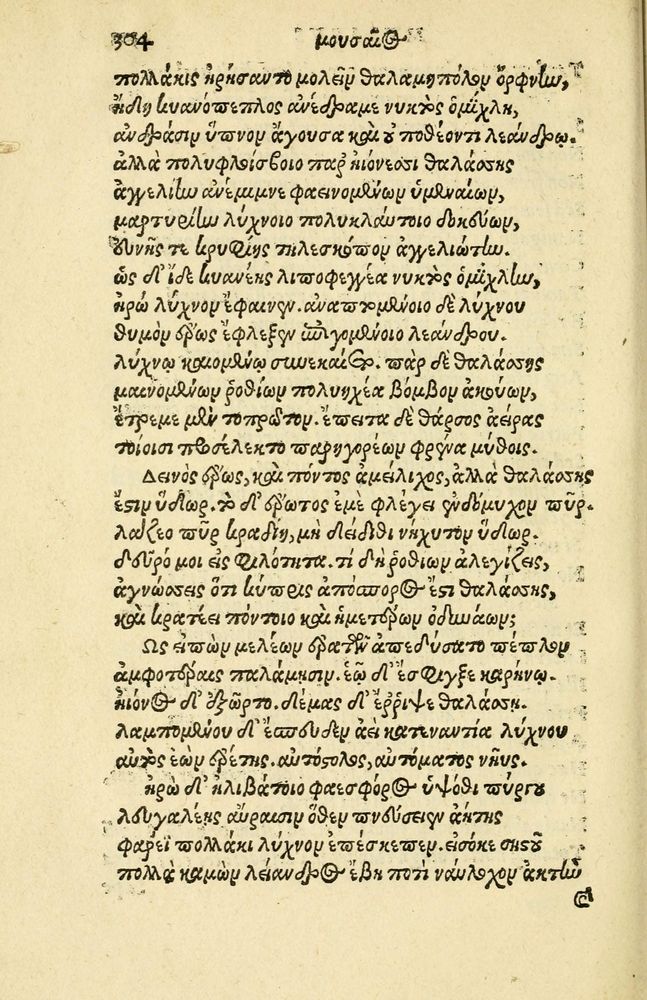 304 μουσαῖος
πολλάκις ἠρήσαντο μολεῖν θαλαμηπόλον ὄρφνην,
ἤδη κυανόπεπλος ἀνέδραμε νυκτὸς ὁμίχλη,
ἀνδράσιν ὕπνον ἄγουσα καὶ οὐ ποθέοντι λεάνδρῳ.
ἀλλὰ πολυφλοίσβοιο παρ' ἠιόνεσσι θαλάσσης
ἀγγελίην ἀνέμιμνε φαεινομένων ὑμεναίων,
μαρτυρίην λύχνοιο πολυκλαύτοιο δοκεύων,
εὐνῆς τε κρυφίης τηλεσκόπον ἀγγελιώτην.
ὡς δ' ἴδε κυανέης λιποφεγγέα νυκτὸς ὁμίχλην,
ἡρὼ λύχνον ἔφαινεν. ἀναπτομένοιο δὲ λύχνου
θυμὸν ἔρως ἔφλεξεν ἐπειγομένοιο λεάνδρου.
λύχνῳ καιομένῳ συνεκαίετο. πὰρ δὲ θαλάσσης
μαινομένων ῥοθίων πολυηχέα βόμβον ἀκούων,
ἔτρεμε μὲν τοπρῶτον. ἔπειτα δὲ θάρσος ἀείρας
τοίοισι προσέλεκτο παρηγορέων φρένα μύθοις.
Δεινὸς ἔρως, καὶ πόντος ἀμείλιχος, ἀλλὰ θαλάσσης
ἔστιν ὕδωρ. τὸ δ' ἔρωτος ἐμὲ φλέγει ἐνδόμυχον πῦρ.
λάζεο πῦρ κραδίη, μὴ δείδιθι νήχυτον ὕδωρ.
δεῦρό μοι εἰς φιλότητα. τί δὴ ῥοθίων ἀλεγίζεις,
ἀγνώσσεις ὅτι κύπρις ἀπόσπορος ἐστὶ θαλάσσης,
καὶ κρατέει πόντοιο καὶ ἡμετέρων ὀδυνάων;
Ὣς εἰπὼν μελέων ἐρατῶν ἀπεδύσατο πέπλον
ἀμφοτέραις παλάμησιν. ἑῷ δ' ἔσφιγξε καρήνῳ.
ἠιόνος δ' ἐξῶρτο. δέμας δ' ἔρριψε θαλάσσῃ.
λαμπομένου δ' ἔσπευδεν ἀεὶ κατεναντία λύχνου
αὐτὸς ἐὼν ἐρέτης. αὐτόστολος, αὐτόματος νηῦς.
ἡρὼ δ' ἠλιβάτοιο φαεσφόρος ὑψόθι πύργου
λευγαλέης αὔραισιν ὅθεν πνεύσειεν ἀήτης
φάρεϊ πολλάκι λύχνον ἐπέσκεπεν. εἰσόκε σηστοῦ
πολλὰ καμὼν λείανδρος ἔβη ποτὶ ναύλοχον ἀκτήν